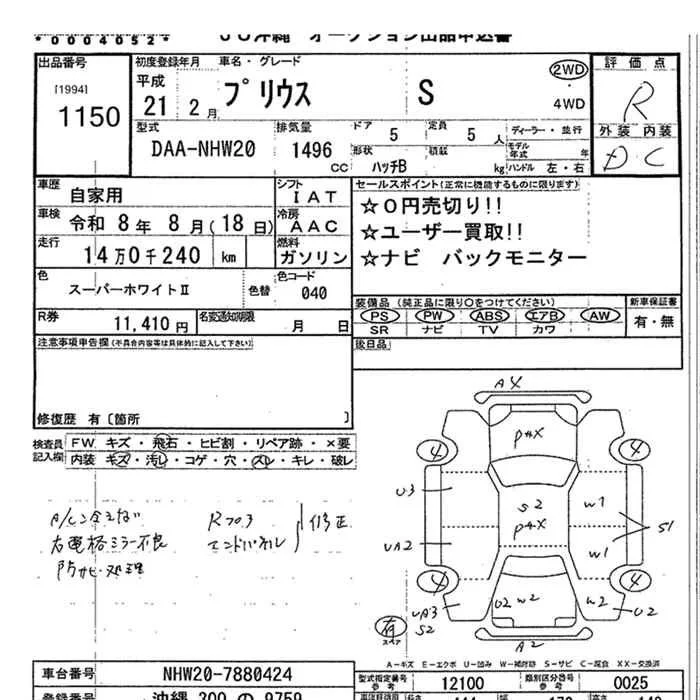 *0004052*
オークション出品申込書
出品番号
[1994]
1150
初度登録年月
平成
21 2月
車名・グレード
プリウス S
2WD
・
4WD
評価点
R
外装 内装
D C
型式
DAA-NHW20
排気量
1496
cc
ドア 5
定員 5人
形状 ハッチB
積載 kg
ディーラー・並行
モデル年式 年
ハンドル 左・右
車歴 自家用
シフト IAT
車検 令和 8年 8月(18日)
冷房 AAC
走行 14万0千240 km
燃料 ガソリン
色
スーパーホワイトⅡ
色替
色コード
040
R券 11,410円
名変通知期限 月 日
セールスポイント(正常に機能するものに限ります)
☆0円売切り!!
☆ユーザー買取!!
☆ナビ バックモニター
装備品 (純正品に限り○をつけてください)
PS PW ABS エアB AW
SR ナビ TV カワ
新車保証書
有・無
後日品
注意事項申告欄(不具合内容等は具体的に記入して下さい)
修復歴 有〔箇所 〕
検査員記入欄
FW キズ・飛石・ヒビ割・リペア跡・×要
内装 キズ・汚レ・コゲ・穴・スレ・キレ・破レ
A/C冷えない
右電格ミラー不良
防サビ処理
Rフロア
エンドパネル
修正
A4
P4X
4
4
U3
S2
P4X
W1
S1
UA2
W1
4
4
UA3
S2
U2
W2
W2
U2
有
スペア
A2
A-キズ E-エクボ U-凹み W-補修跡 S-サビ C-腐食 XX-交換済
車台番号 NHW20-7880424
型式指定番号 12100
類別区分番号 0025
登録番号 沖縄 300 の 9759